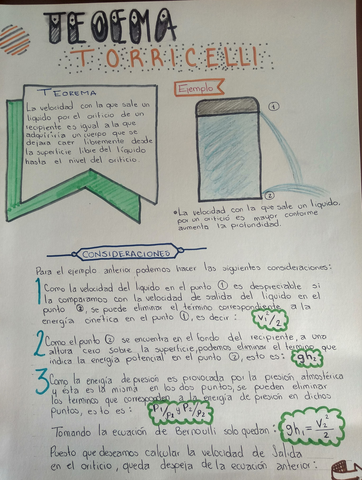 TEOEMA
TORRICELLI
TEOREMA
La velocidad con la que sale un
líquido por el orificio de un
recipiente es igual a la que
adquiriría un cuerpo que se
dejara caer libremente desde
la superficie libre del líquido
hasta el nivel del orificio.
Ejemplo
1
2
•La velocidad con la que sale un líquido,
por un orificio es mayor conforme
aumenta la profundidad.
CONSIDERACIONES
Para el ejemplo anterior podemos hacer las siguientes consideraciones:
1 Como la velocidad del líquido en el punto ① es despreciable si
la comparamos con la velocidad de salida del líquido en el
punto ②, se puede eliminar el término correspondiente a la
energía cinética en el punto ①, es decir: v₁²/2
2 Como el punto ② se encuentra en el fondo del recipiente, a una
altura cero sobre la superficie, podemos eliminar el término que
indica la energía potencial en el punto ②, esto es: gh₂
3 Como la energía de presión es provocada por la presión atmosférica
y ésta es la misma en los dos puntos, se pueden eliminar
los términos que corresponden a la energía de presión en dichos
puntos, esto es: P₁/ρ₂ y P₂/ρ₂
Tomando la ecuación de Bernoulli solo quedan: gh₁ = V₂²/2
Puesto que deseamos calcular la velocidad de salida
en el orificio, queda despeja de la ecuación anterior: